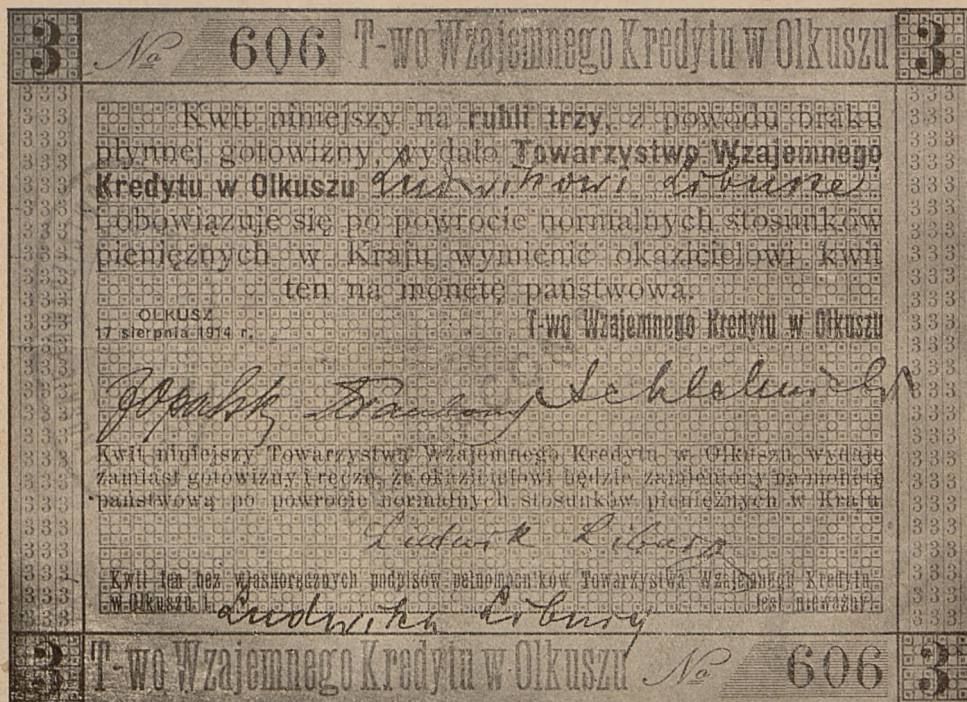 3 No 606 T-wo Wzajemnego Kredytu w Olkuszu 3
Kwit niniejszy na rubli trzy, z powodu braku
płynnej gotowizny, wydało Towarzystwo Wzajemnego
Kredytu w Olkuszu Ludwikowi Libursze
i obowiązuje się po powrocie normalnych stosunków
pieniężnych w Kraju wymienić okazicielowi kwit
ten na monetę państwową.
OLKUSZ
17 sierpnia 1914 r.
T-wo Wzajemnego Kredytu w Olkuszu
Kwit niniejszy Towarzystwa Wzajemnego Kredytu w Olkuszu wydaję
zamiast gotowizny i ręczę, że okazicielowi będzie zamieniony na monetę
państwową po powrocie normalnych stosunków pieniężnych w Kraju
Ludwik Libura
Kwit ten bez własnoręcznych podpisów pełnomocników Towarzystwa Wzajemnego Kredytu
w Olkuszu i Ludwika Libury jest nieważny.
3 T-wo Wzajemnego Kredytu w Olkuszu No 606 3